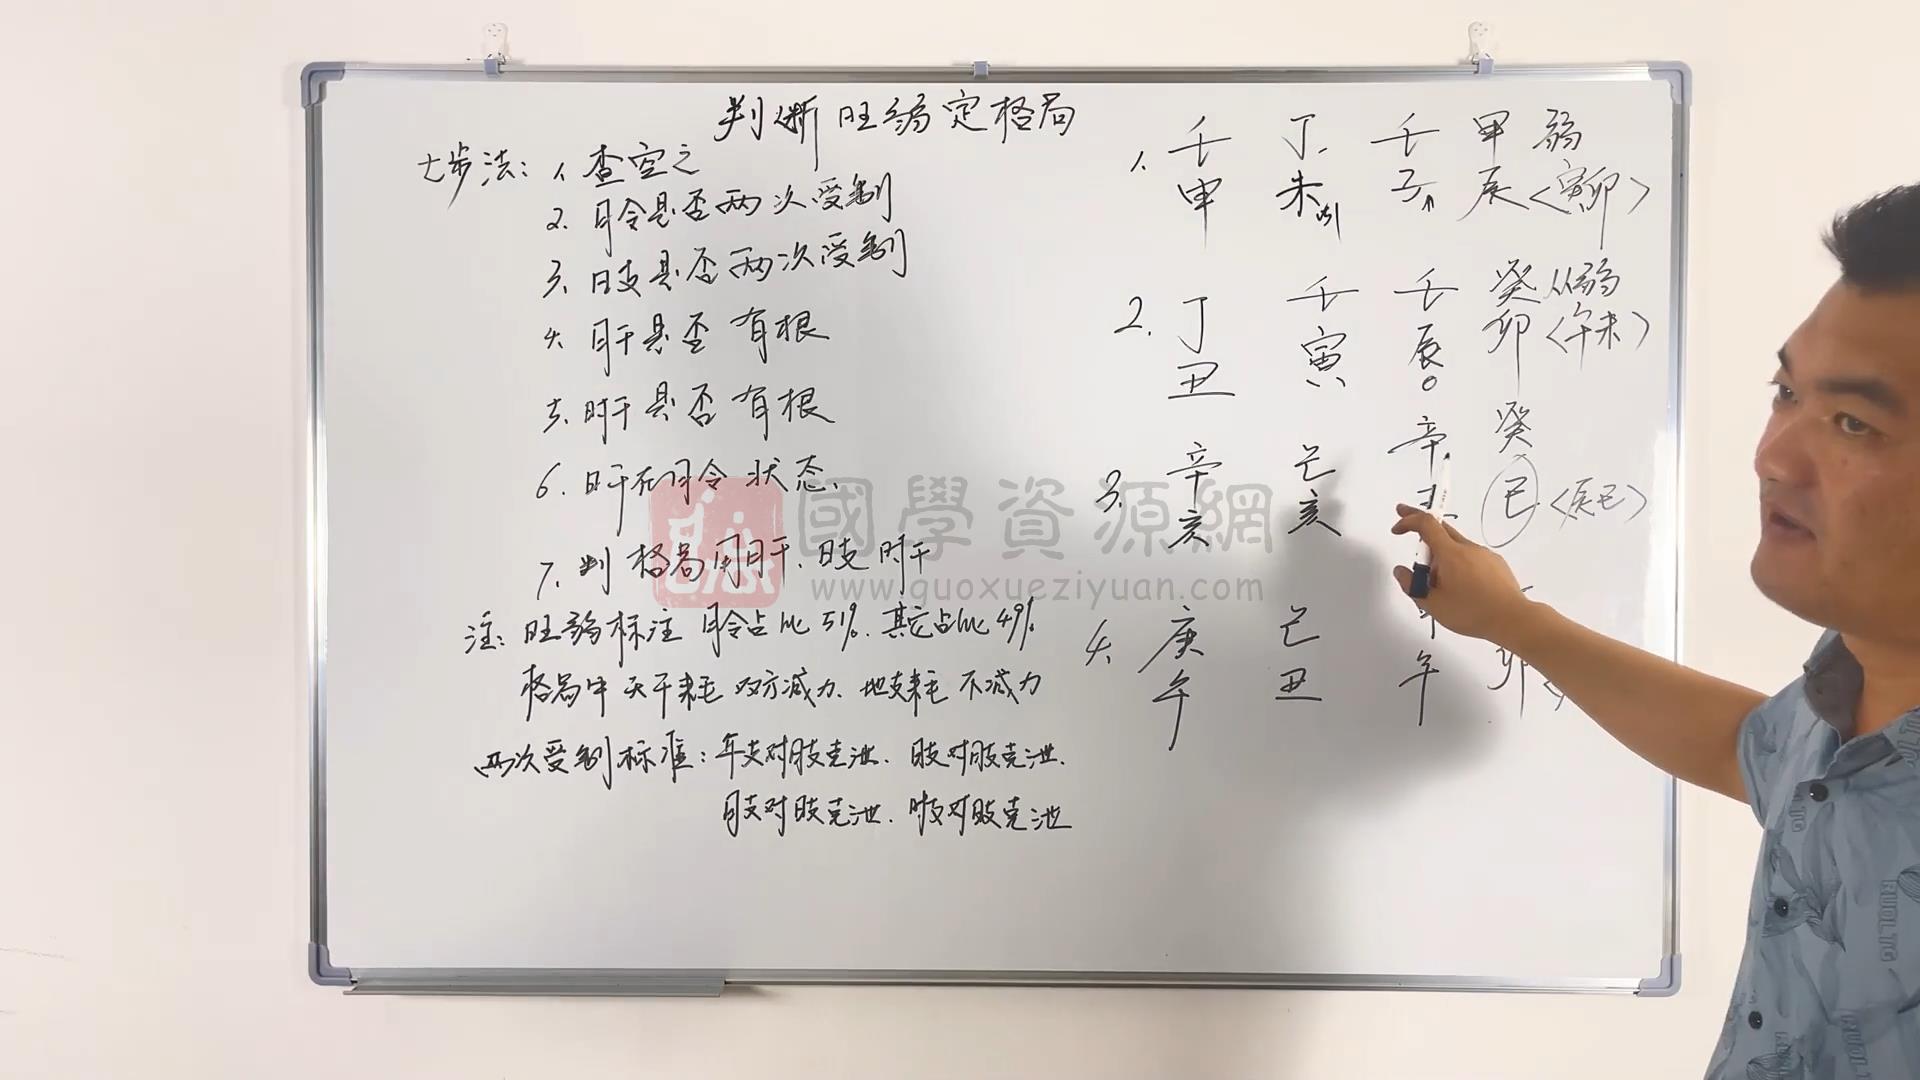 判断旺弱定格局
七步法：1、查空亡
2、月令是否两次受制
3、日支是否两次受制
4、月干是否有根
5、时干是否有根
6、日干在月令状态、
7、判格局用月干、日支、时干
注：旺弱标注 月令占比51%、其它占比49%
格局中天干耗双方减力、地支耗不减力
两次受制标准：年支对月支克泄、日支对月支克泄、
月支对日支克泄、时支对日支克泄
1、壬 丁 壬 甲 弱
申 未 子 辰〈寅卯〉
2、丁 壬 壬 癸 从弱
丑 寅 辰 卯〈午未〉
3、辛 己 辛 癸
亥 亥 巳〈辰巳〉
4、庚 己
午 丑 午 卯
國學資源網
www.guoxueziyuan.com
RUOLTG